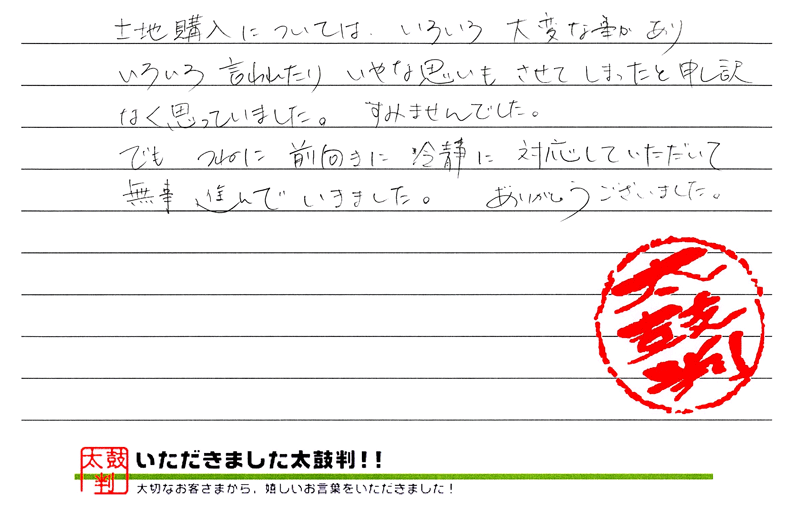 土地購入については、いろいろ大変な事があり
いろいろ言われたりいやな思いもさせてしまったと申し訳
なく思っていました。すみませんでした。
でもつねに前向きに冷静に対応していただいて
無事進んでいきました。ありがとうございました。
太鼓判
太鼓判
いただきました太鼓判！！
大切なお客さまから、嬉しいお言葉をいただきました！